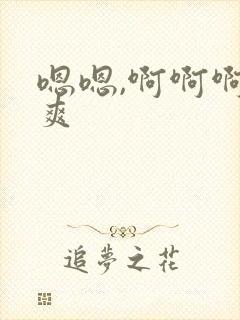 嗯嗯,啊啊啊
爽
追夢之花